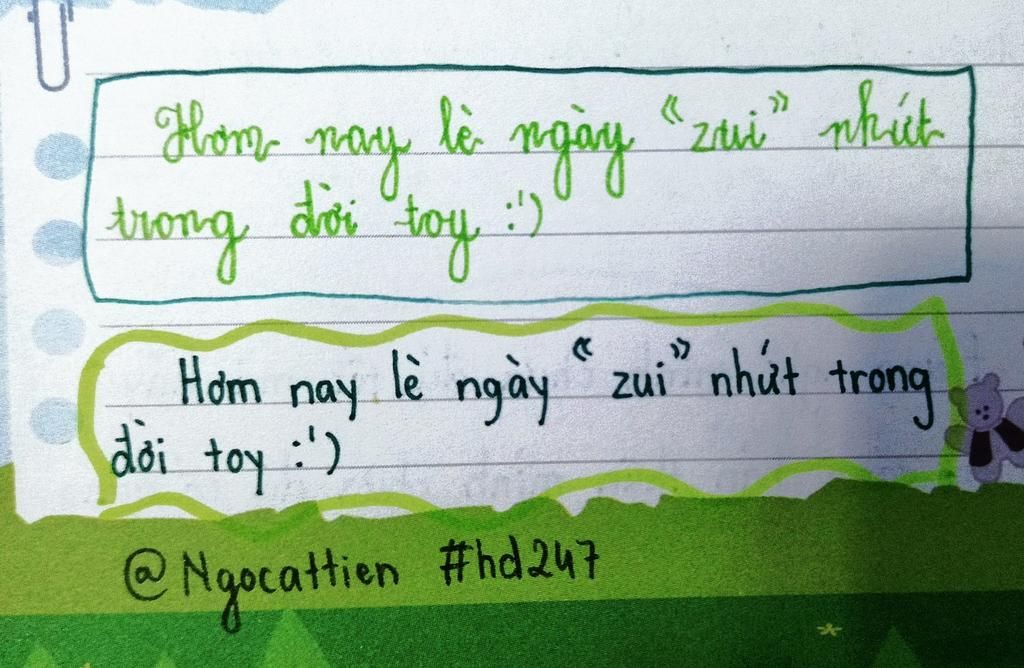 Hơm nay lè ngày “zui” nhứt
trong đời toy :')
Hơm nay lè ngày “zui” nhứt trong
đời toy :')
@Ngocattien #hd247